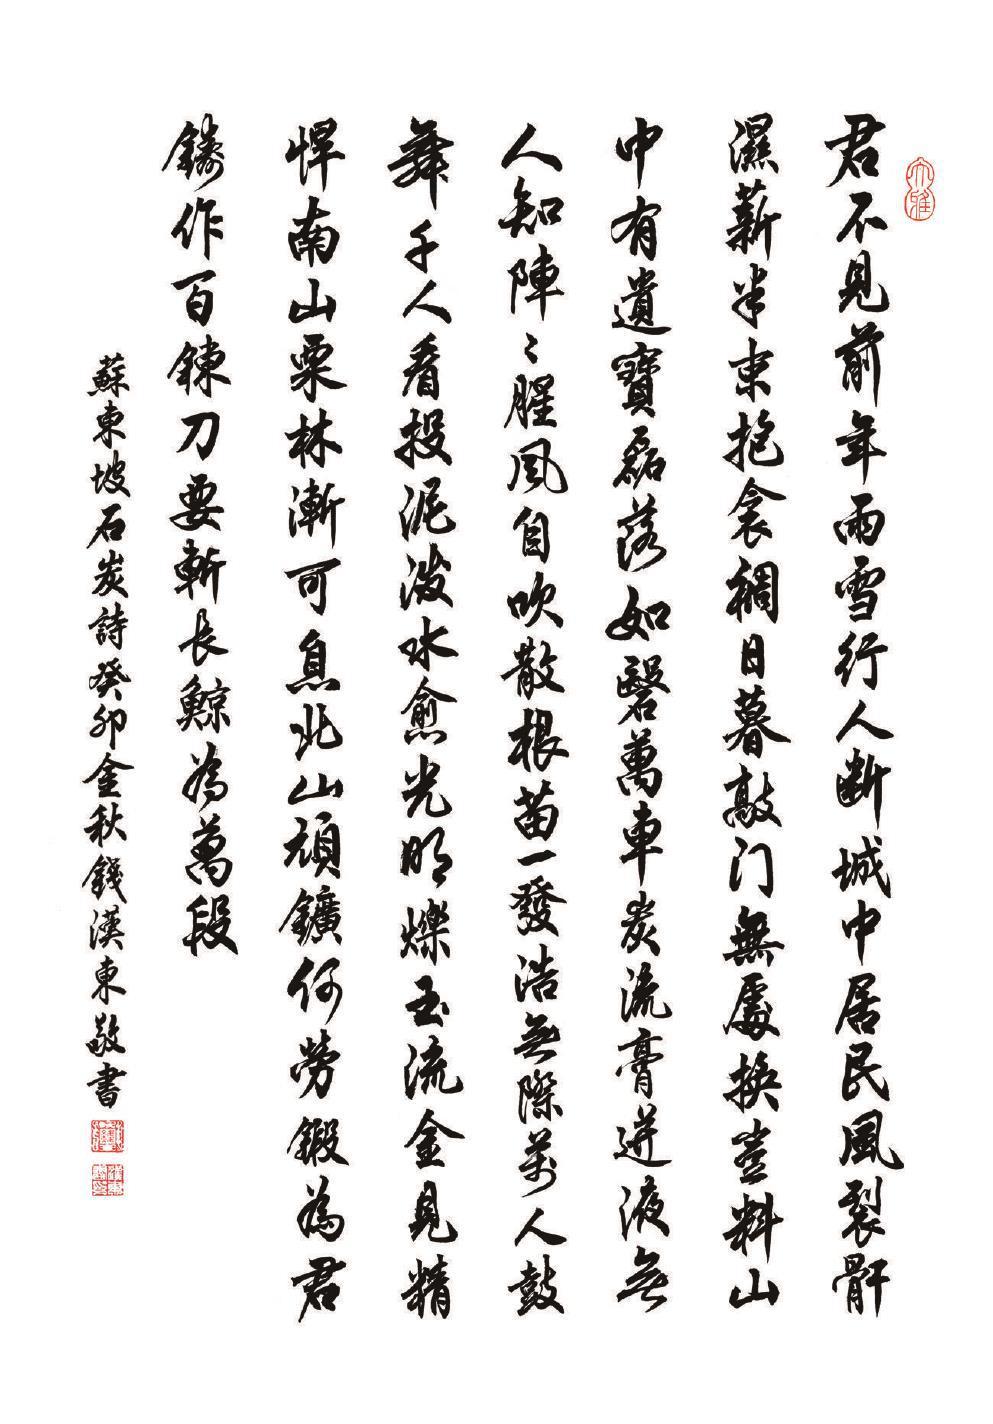 君不見前年雨雪行人断城中居民風裂骭
濕薪半束抱衾裯日暮敲门無處換豈料山
中有遺寶磊落如磬萬車炭流膏迸液无
人知陣〻腥風自吹散根苗一發浩无際万人鼓
舞千人看投泥潑水愈光明爍玉流金見精
悍南山栗林漸可息北山頑鑛何勞鍛為君
鑄作百鍊刀要斬長鯨為萬段
蘇東坡石炭詩癸卯金秋錢漢東敬書
大雅